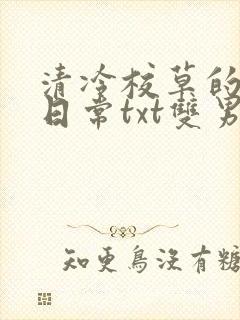 清冷校草的
日常txt雙男
知更鳥沒有糖